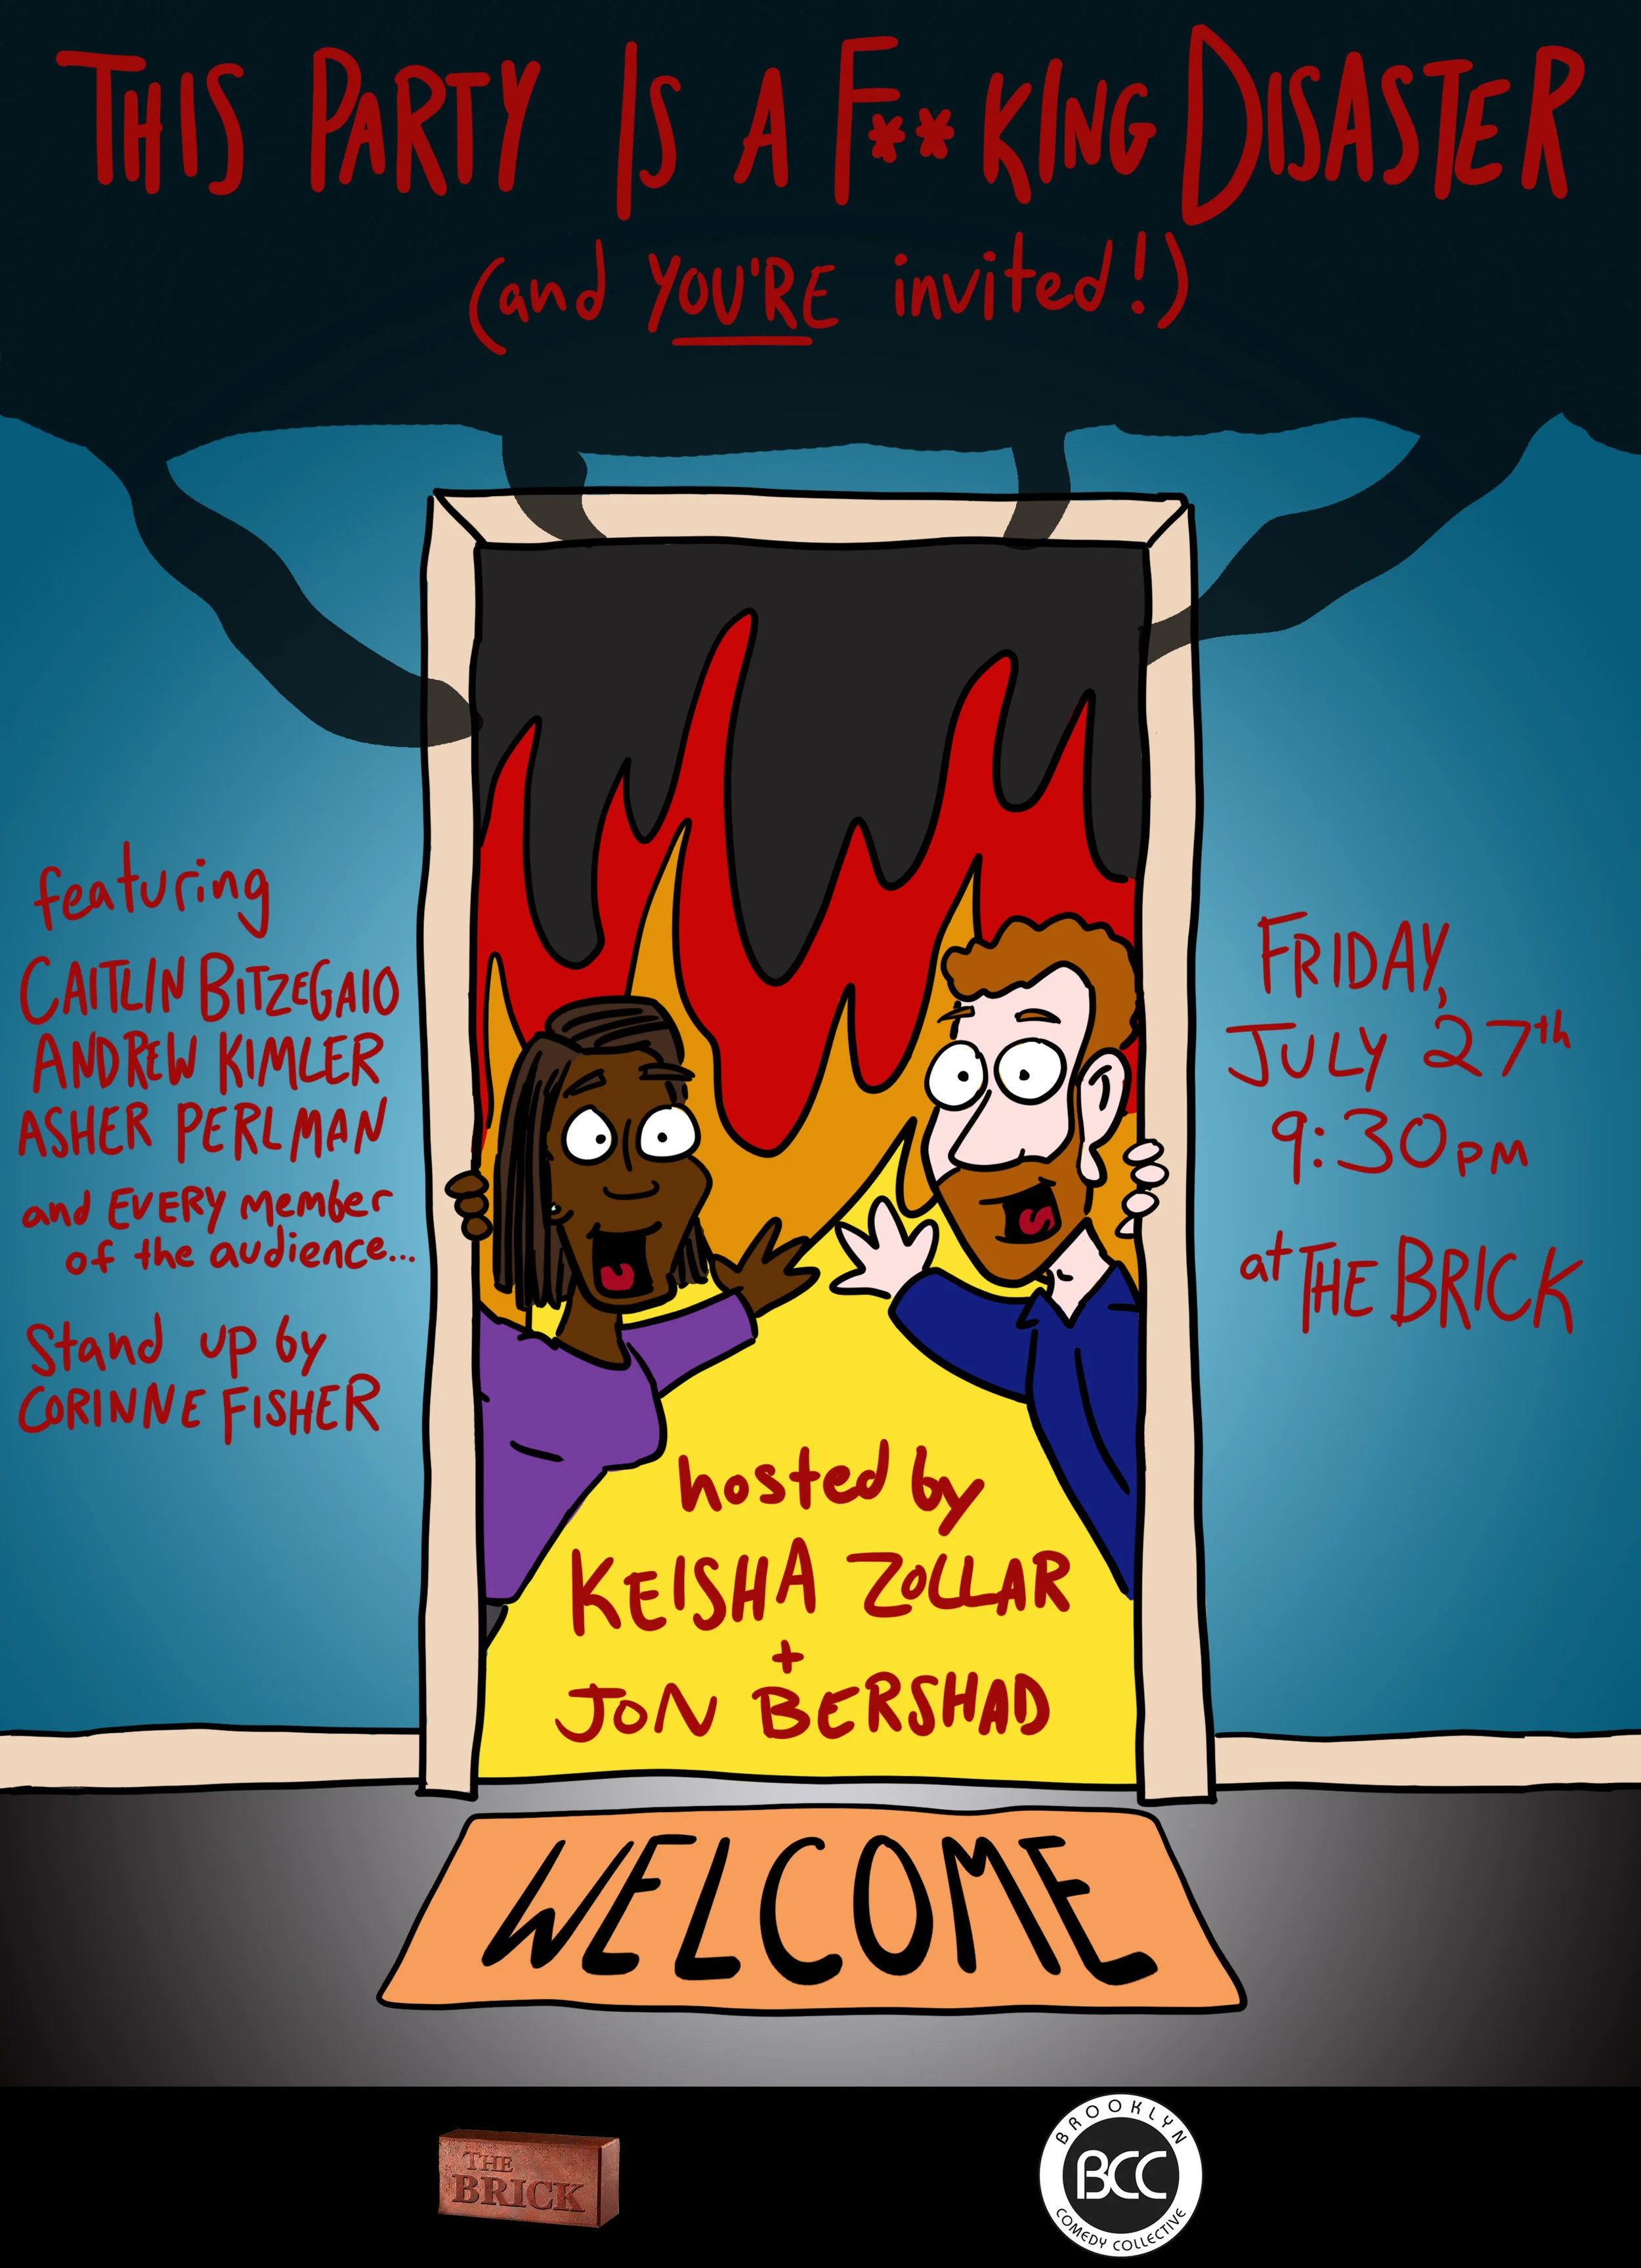 THIS PARTY IS A F**KING DISASTER
(and YOU'RE invited!)
featuring
CAITLIN BITZEGAIO
ANDREW KIMLER
ASHER PERLMAN
and EVERY member
of the audience...
Stand up by
CORINNE FISHER
FRIDAY,
JULY 27th
9:30PM
at THE BRICK
hosted by
KEISHA ZOLLAR
+
JON BERSHAD
WELCOME
THE
BRICK
BROOKLYN
BCC
COMEDY COLLECTIVE